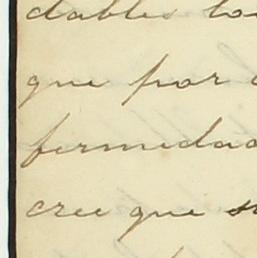 dables lo
que por
fermedad
cree que s